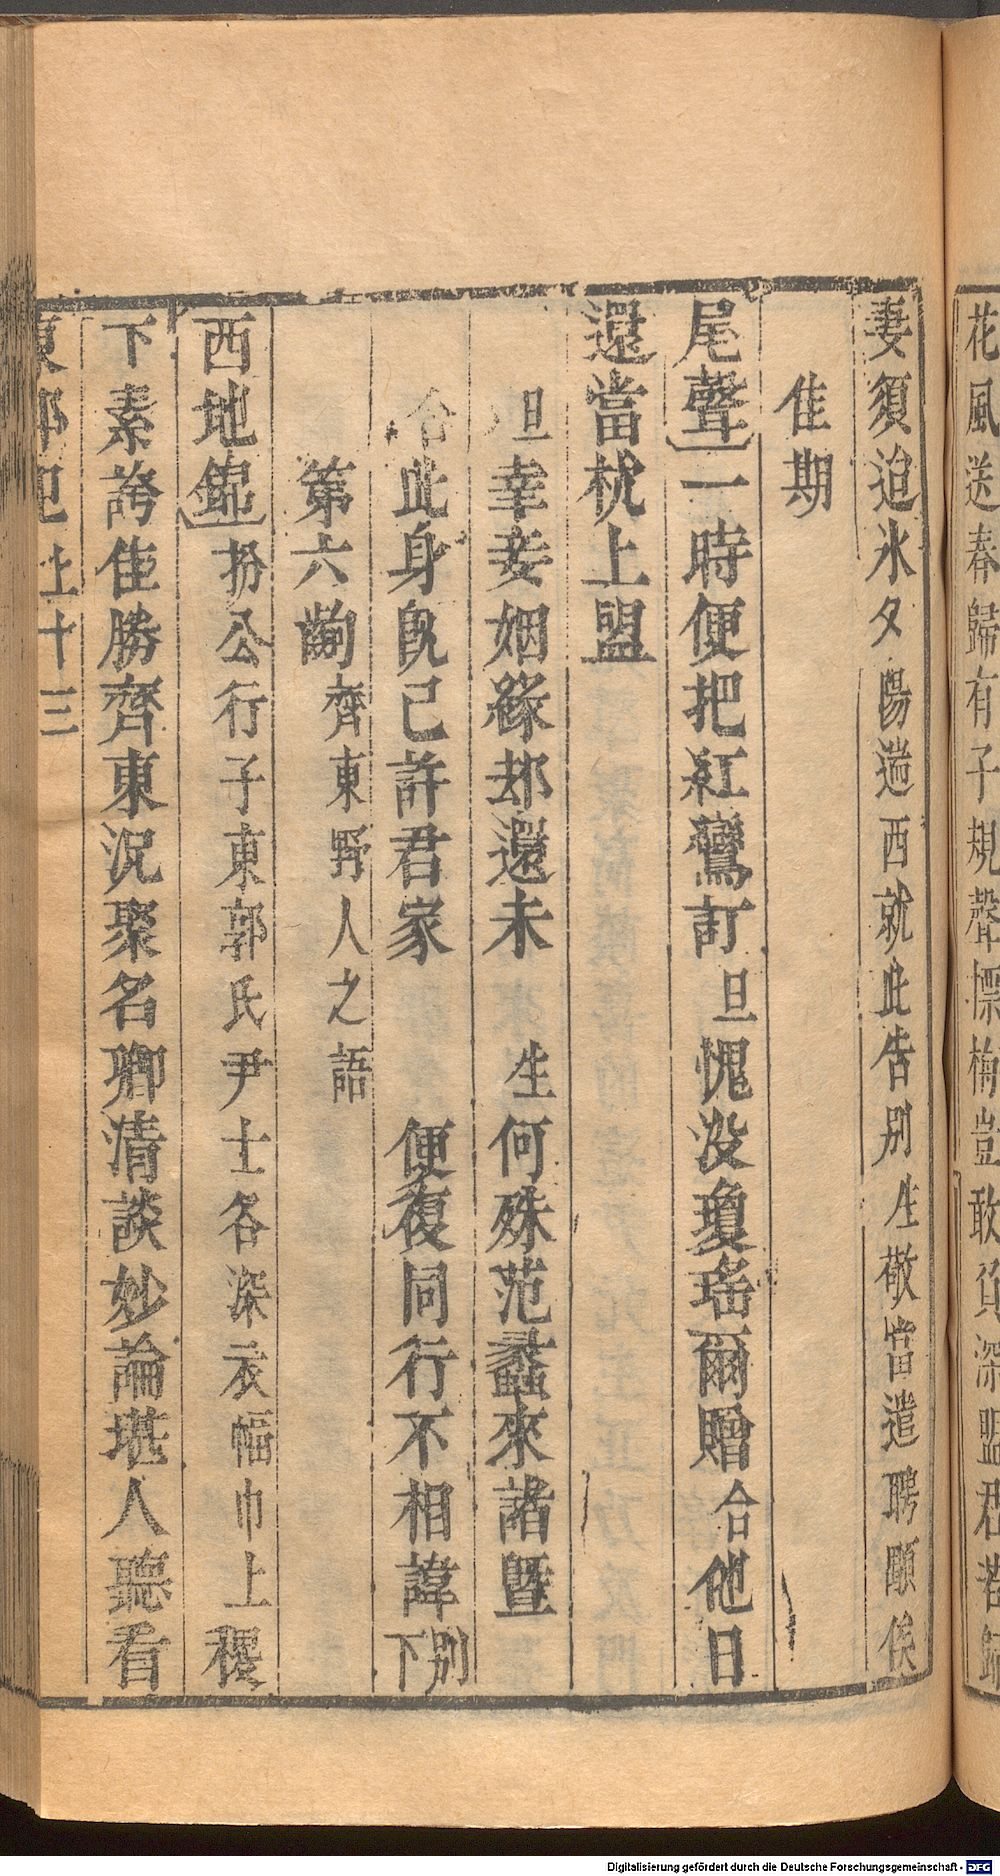 花風送春歸有子規聲標梅豈敢負深盟君若歸
妻須迨氷夕陽遄西就此告別生敬當遣聘願俟
佳期
尾聲一時便把紅鸞訂旦愧沒瓊瑤爾贈合他日
還當枕上盟
旦幸妾姻緣却還未　生何殊范蠡來諸暨
合此身既已許君家　便復同行不相諱別下
第六齣齊東野人之語
西地錦扮公行子東郭氏尹士各深衣幅巾上稷
下素誇佳勝齊東況聚名卿清談妙論堪人聽看
東郭記上十三
Digitalisierung gefördert durch die Deutsche Forschungsgemeinschaft - DFG